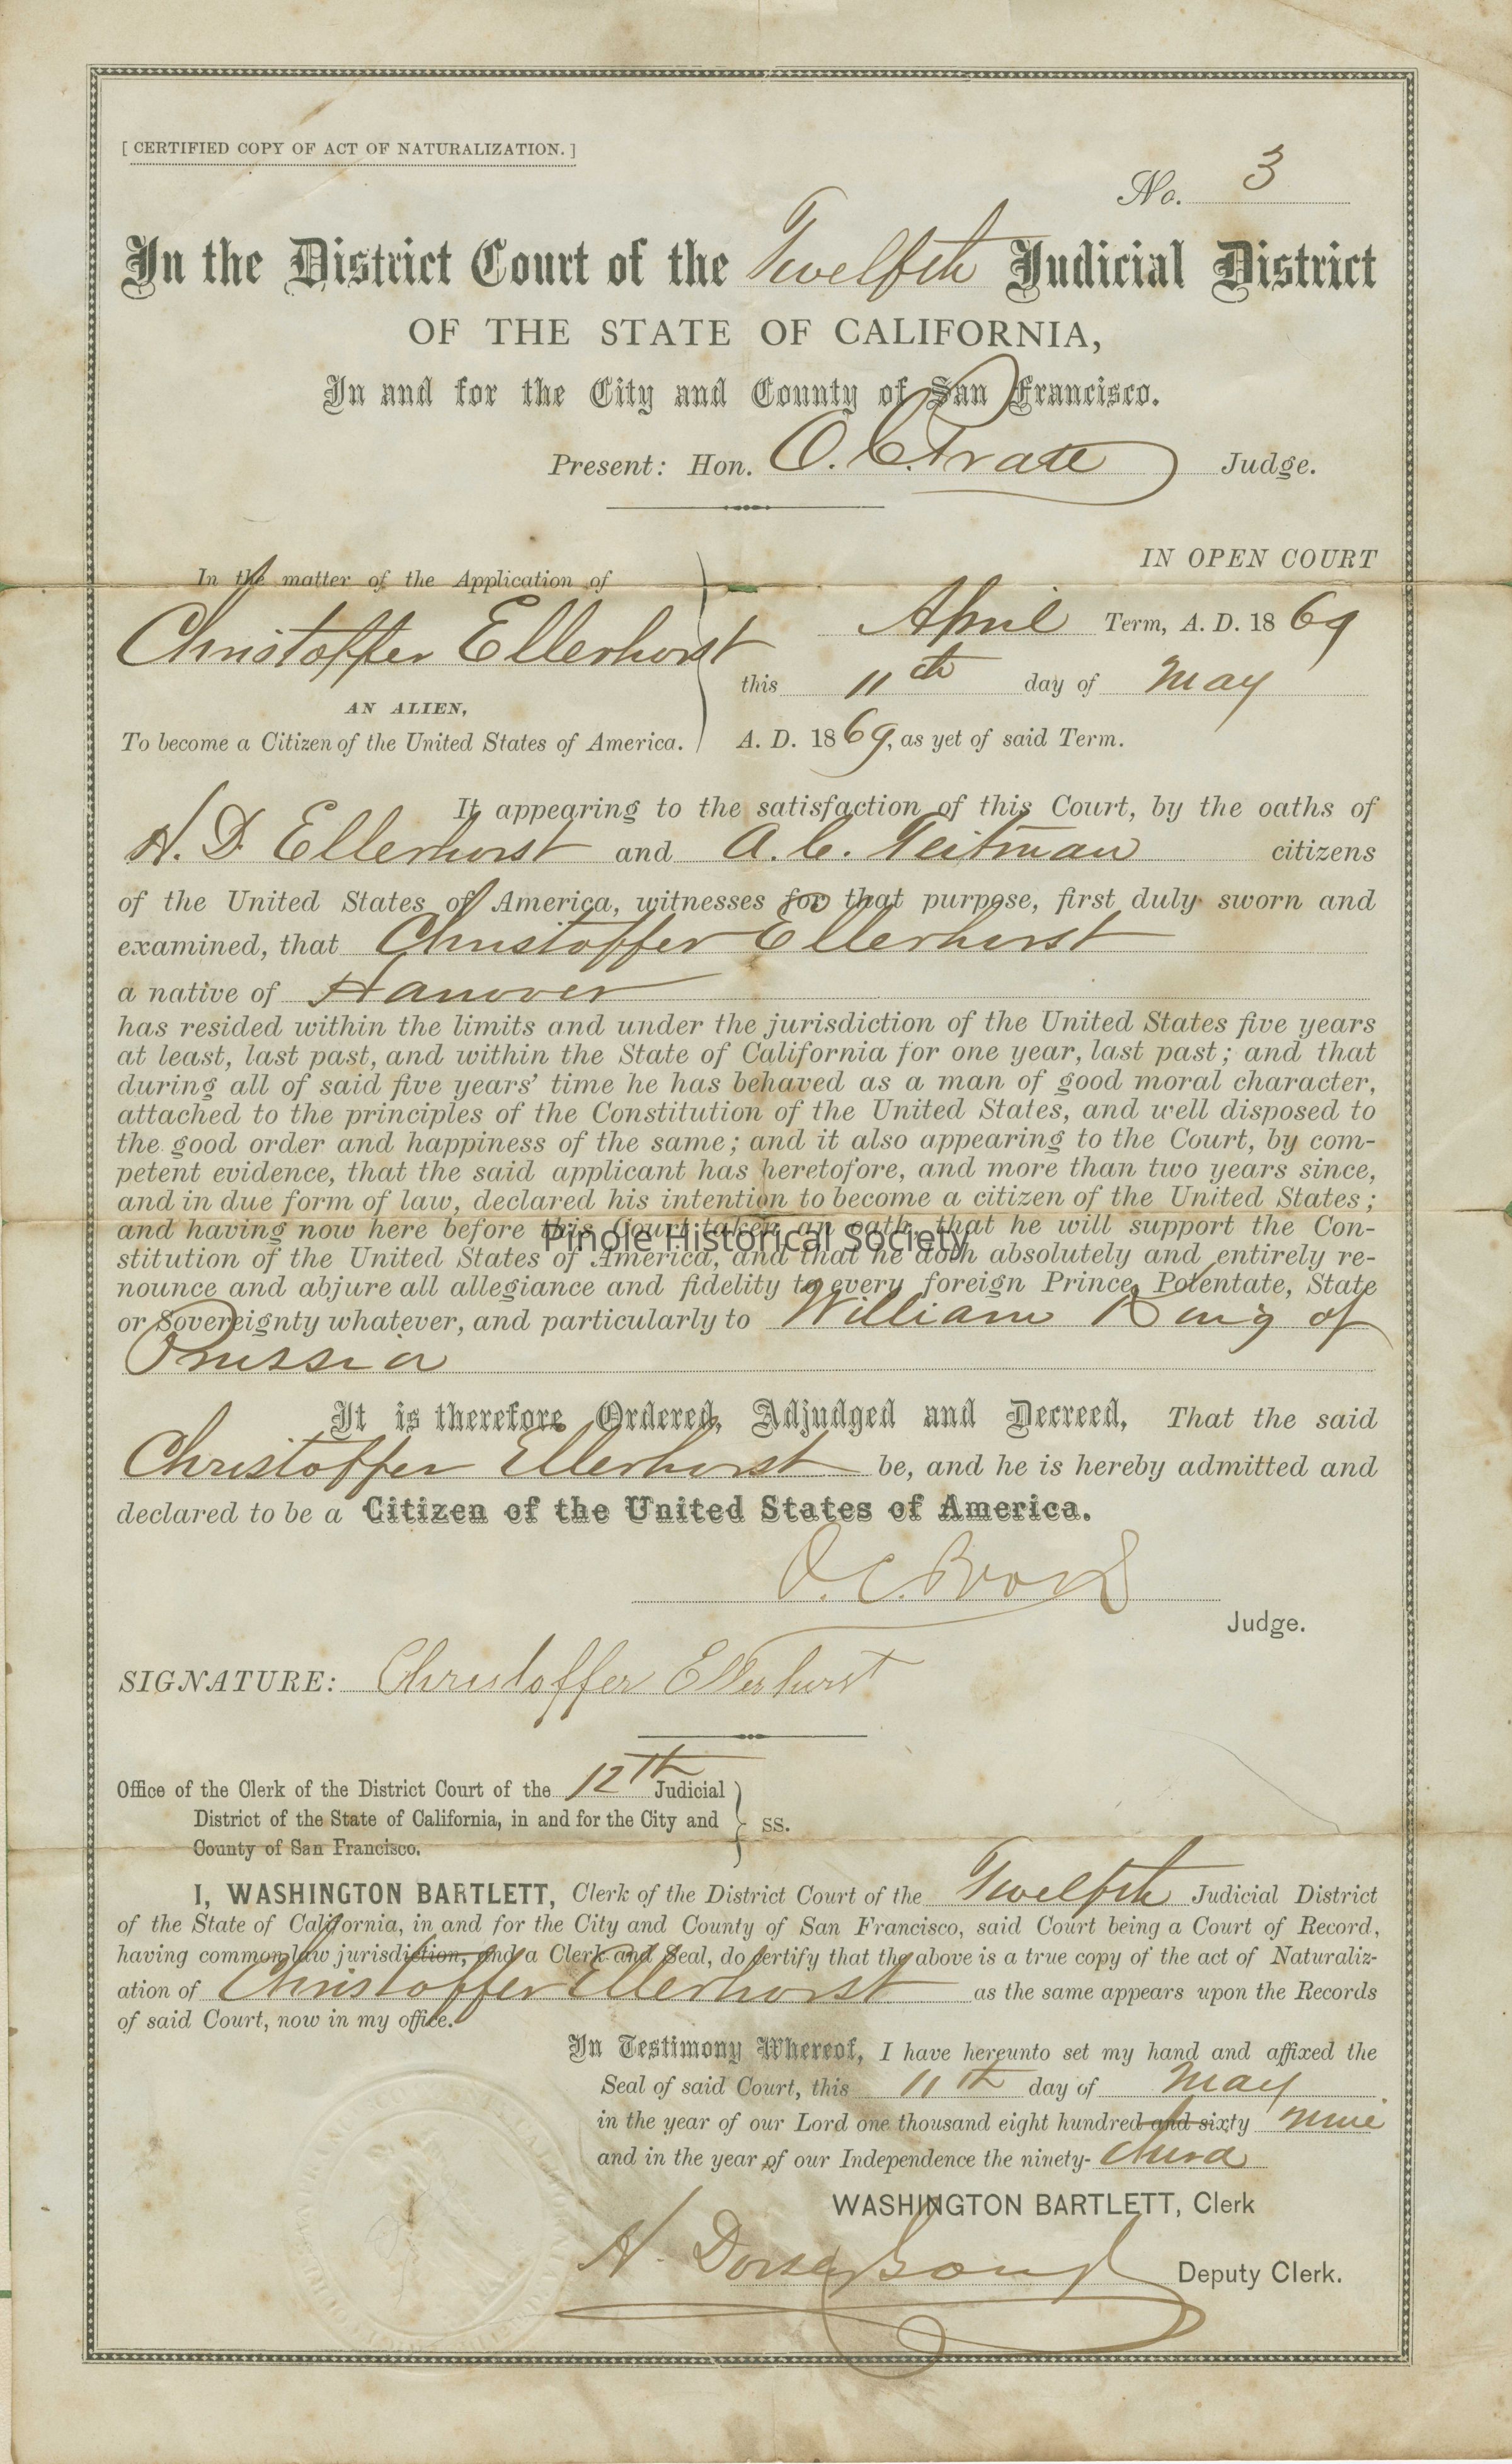 [ CERTIFIED COPY OF ACT OF NATURALIZATION. ]
No. 3
In the District Court of the Twelfth Judicial District
OF THE STATE OF CALIFORNIA,
In and for the City and County of San Francisco.
Present: Hon. O. C. Pratt Judge.
IN OPEN COURT
In the matter of the Application of
Christoffer Ellerhorst
AN ALIEN,
To become a Citizen of the United States of America.
April Term, A. D. 1869
this 11th day of May
A. D. 1869, as yet of said Term.
It appearing to the satisfaction of this Court, by the oaths of
H. D. Ellerhorst and A. C. citizens
of the United States of America, witnesses for that purpose, first duly sworn and
examined, that Christoffer Ellerhorst
a native of Hanover
has resided within the limits and under the jurisdiction of the United States five years
at least, last past, and within the State of California for one year, last past; and that
during all of said five years' time he has behaved as a man of good moral character,
attached to the principles of the Constitution of the United States, and well disposed to
the good order and happiness of the same; and it also appearing to the Court, by com-
petent evidence, that the said applicant has heretofore, and more than two years since,
and in due form of law, declared his intention to become a citizen of the United States;
and having now here before this Court taken an oath, that he will support the Con-
Pinole Historical Society
stitution of the United States of America, and that he doth absolutely and entirely re-
nounce and abjure all allegiance and fidelity to every foreign Prince, Potentate, State
or Sovereignty whatever, and particularly to William King of
Prussia
It is therefore Ordered, Adjudged and Decreed, That the said
Christoffer Ellerhorst be, and he is hereby admitted and
declared to be a Citizen of the United States of America.
O. C. Pratt
Judge.
SIGNATURE: Christoffer Ellerhorst
Office of the Clerk of the District Court of the 12th Judicial
District of the State of California, in and for the City and
County of San Francisco.
ss.
I, WASHINGTON BARTLETT, Clerk of the District Court of the Twelfth Judicial District
of the State of California, in and for the City and County of San Francisco, said Court being a Court of Record,
having common law jurisdiction, and a Clerk and Seal, do certify that the above is a true copy of the act of Naturaliz-
ation of Christoffer Ellerhorst as the same appears upon the Records
of said Court, now in my office.
In Testimony Whereof, I have hereunto set my hand and affixed the
Seal of said Court, this 11th day of May
in the year of our Lord one thousand eight hundred and sixty nine
and in the year of our Independence the ninety- third
WASHINGTON BARTLETT, Clerk
Deputy Clerk.